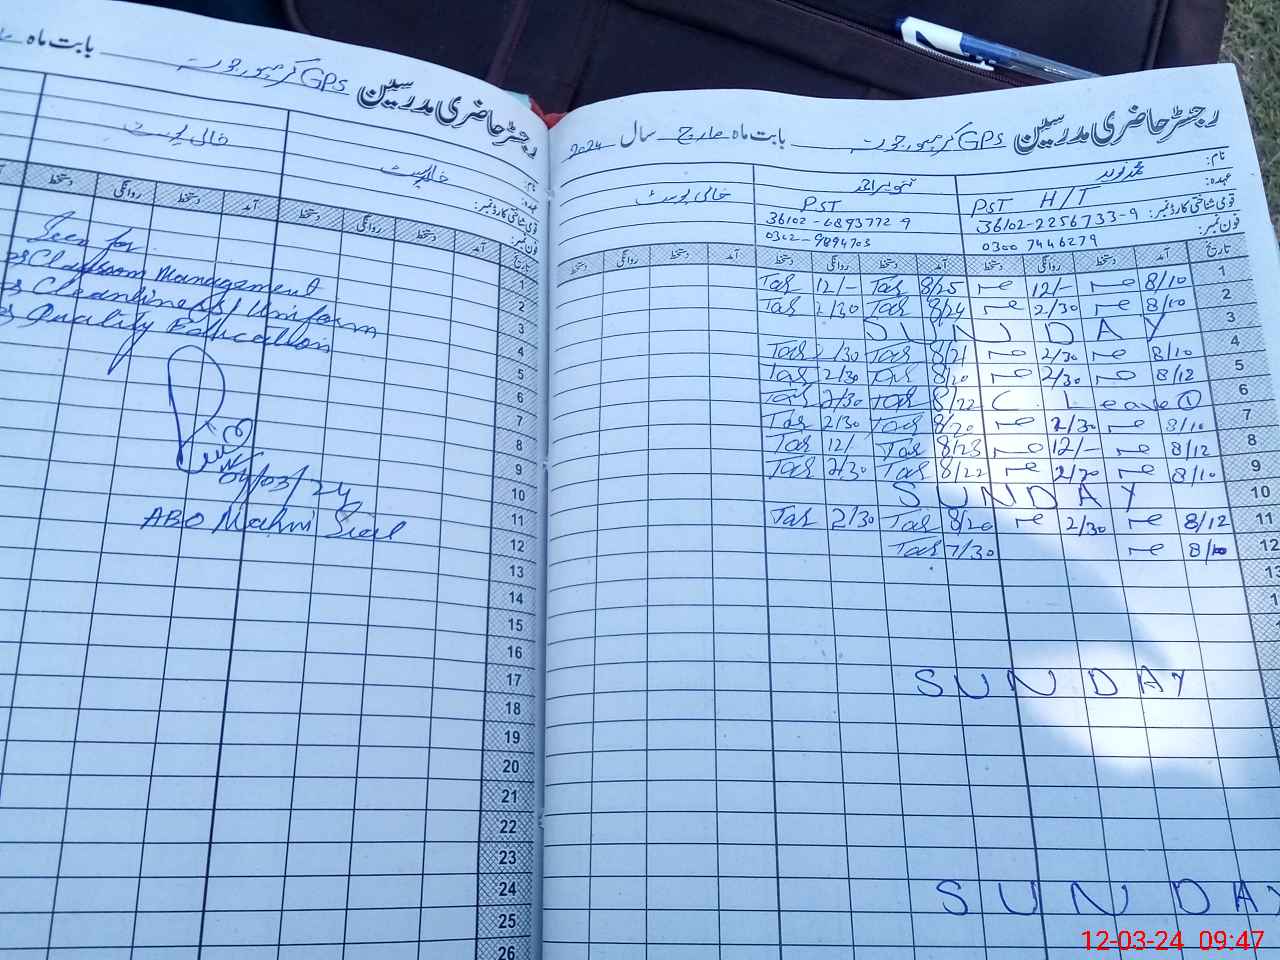 بابت ماہ
رجسٹر حاضری مدرسین GPS
نام:
عہدہ:
قومی شناختی کارڈ نمبر:
فون نمبر:
خالی پوسٹ
خالی پوسٹ
تاریخ آمد دستخط روانگی دستخط آمد دستخط روانگی دستخط
Seen for
Classroom Management
Cleanliness / Uniform
Quality Education
04/03/24
ABO Mahni Sial
1
2
3
4
5
6
7
8
9
10
11
12
13
14
15
16
17
18
19
20
21
22
23
24
25
26
رجسٹر حاضری مدرسین GPS بابت ماہ مارچ سال 2024
نام: محمد نوید
عہدہ: PST H/T
قومی شناختی کارڈ نمبر: 36102-2256733-9
فون نمبر: 0300 7446279
تنویر احمد
PST
36102-6893772 9
0302-9894703
خالی پوسٹ
تاریخ آمد دستخط روانگی دستخط آمد دستخط روانگی دستخط آمد دستخط روانگی دستخط
Tas 12/- Tas 8/25 12/- 8/10 1
Tas 2/30 Tas 8/24 2/30 8/10 2
SUNDAY 3
Tas 2/30 Tas 8/21 2/30 8/10 4
Tas 2/30 Tas 8/20 2/30 8/12 5
Tas 2/30 Tas 8/22 C. Leave ① 6
Tas 2/30 Tas 8/20 2/30 8/10 7
Tas 12/- Tas 8/23 12/- 8/12 8
Tas 2/30 Tas 8/22 2/30 8/10 9
SUNDAY 10
Tas 2/30 Tas 8/20 2/30 8/12 11
Tas 7/30 8/10 12
13
SUNDAY
SUNDAY
12-03-24 09:47